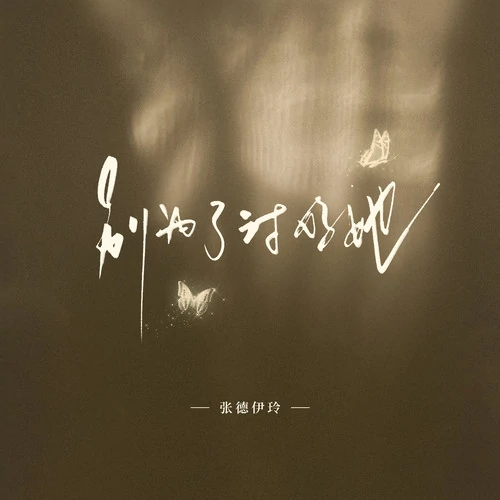 别为了讨好她
— 张德伊玲 —